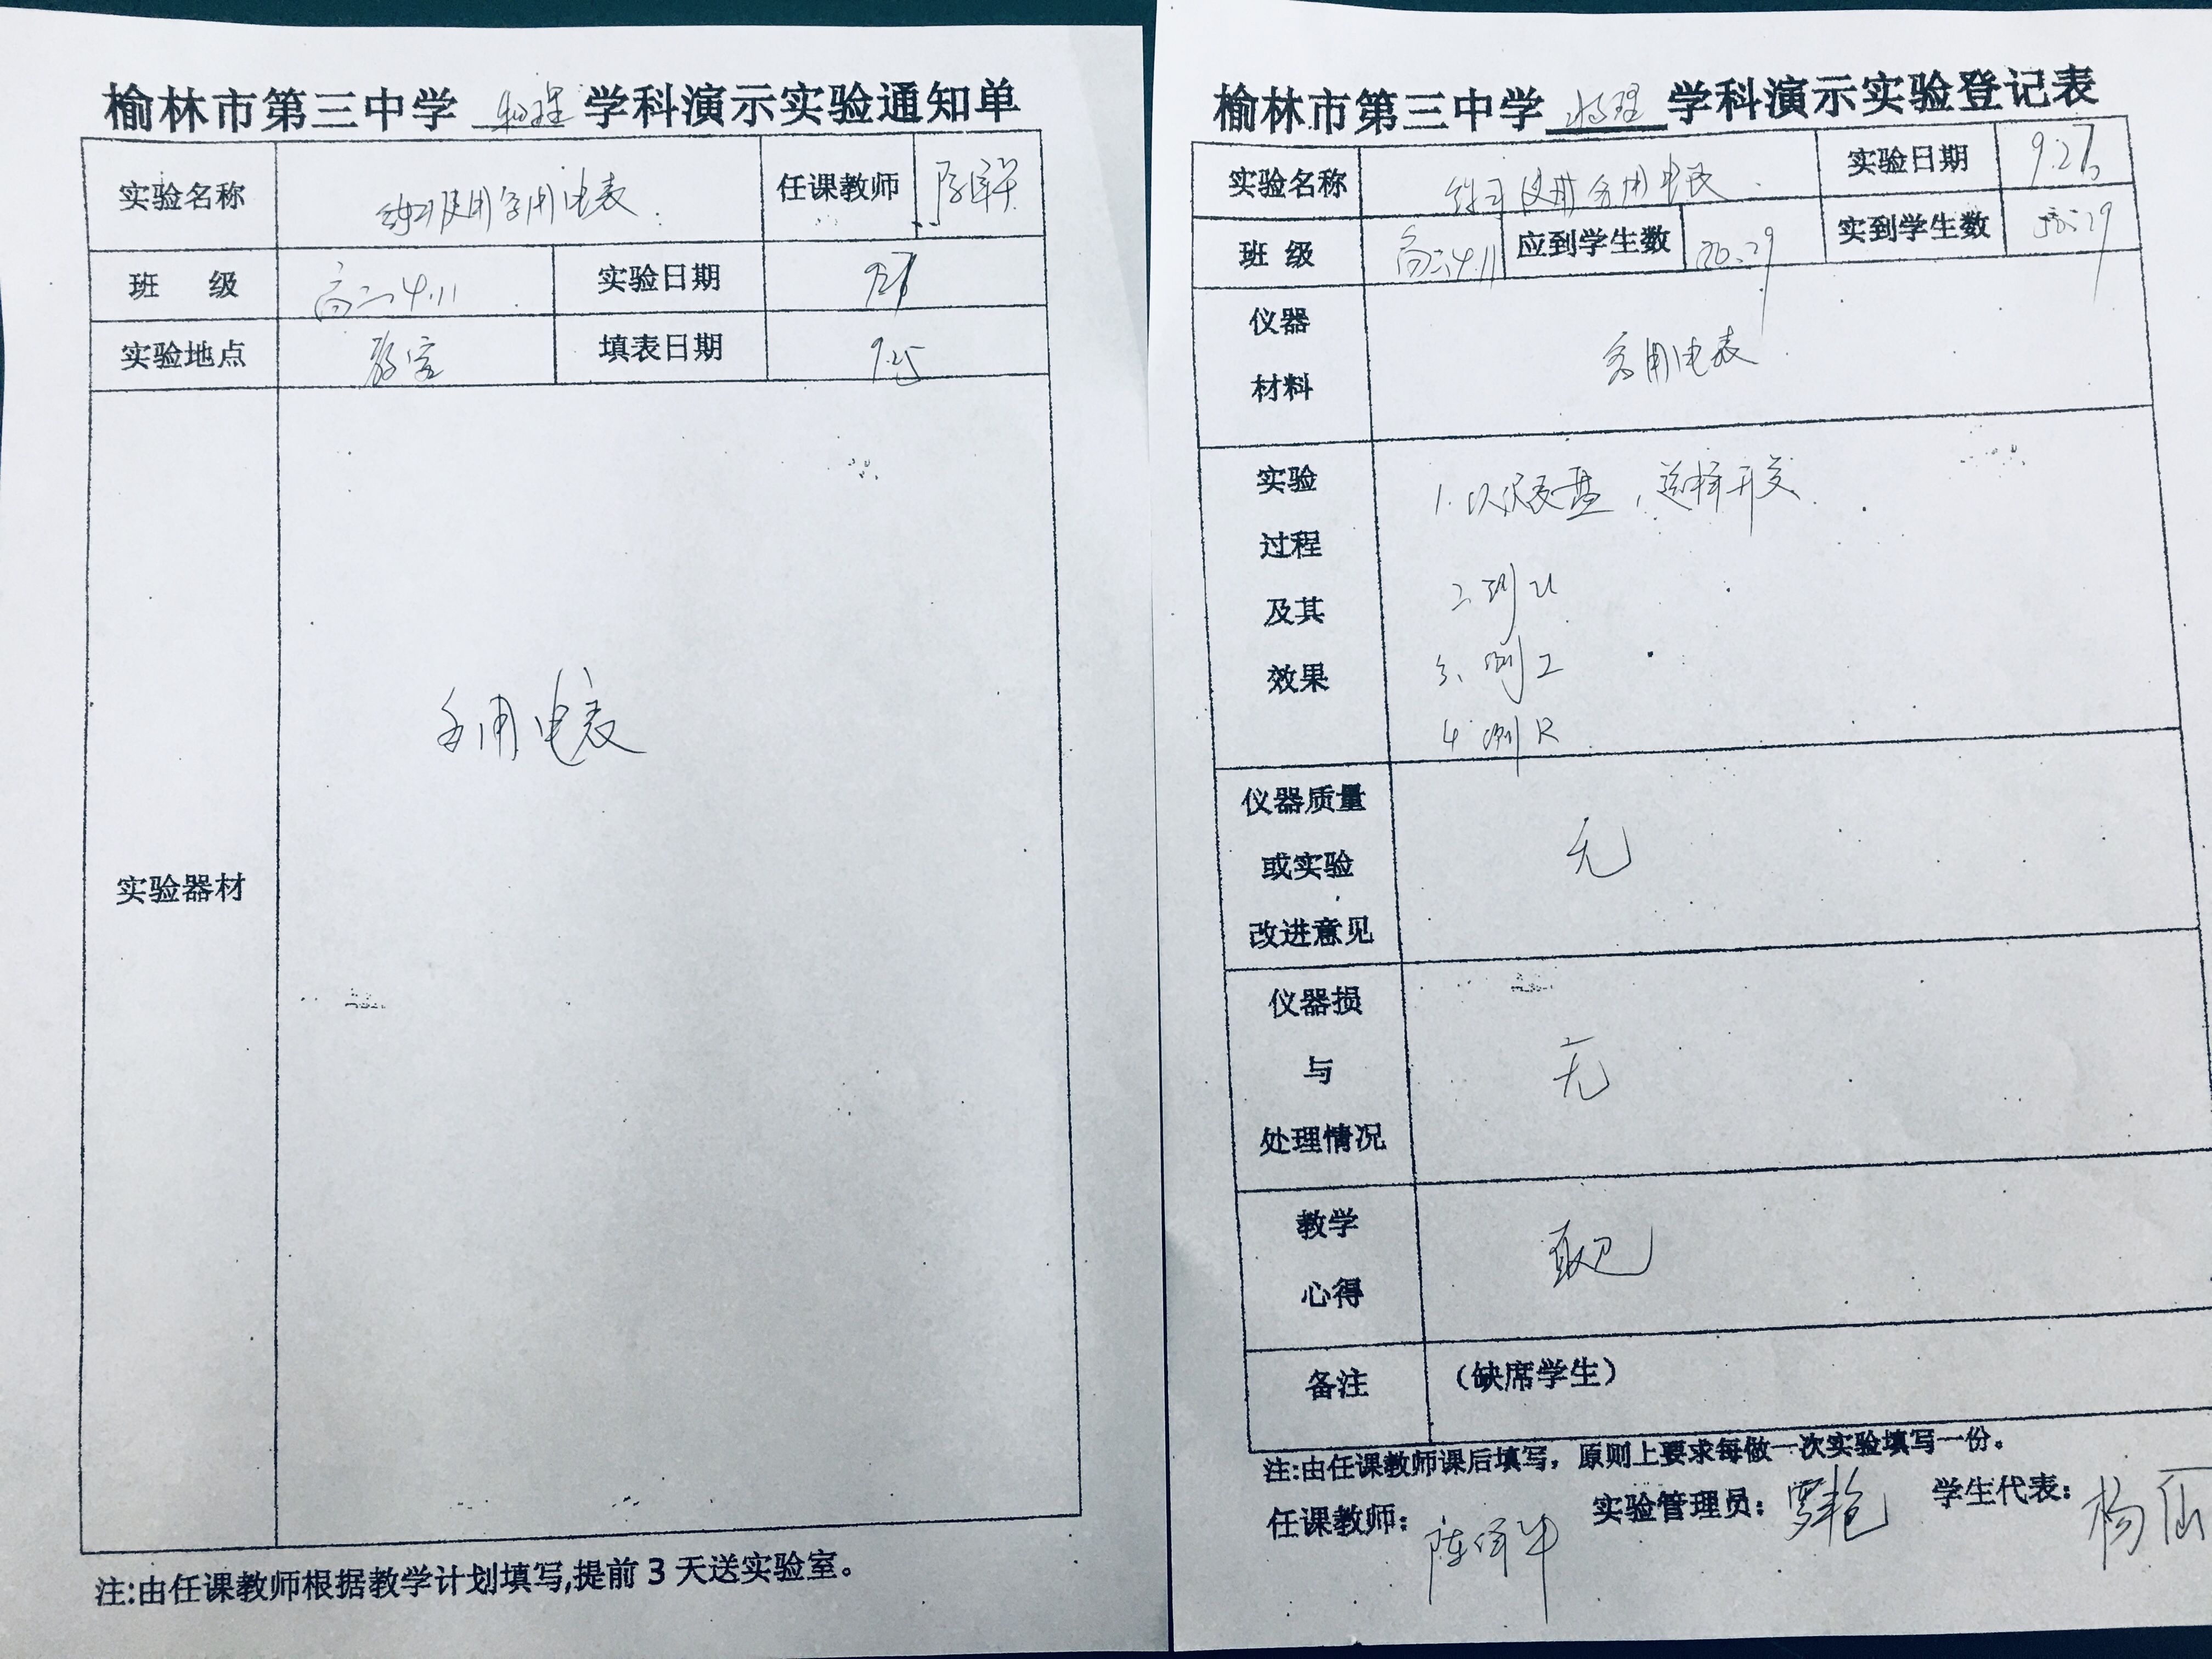 榆林市第三中学 物理 学科演示实验通知单
实验名称 练习使用多用电表 任课教师
班 级 高二4.11 实验日期 9.27
实验地点 教室 填表日期 9.25
实验器材 多用电表
注:由任课教师根据教学计划填写,提前 3 天送实验室。
榆林市第三中学 物理 学科演示实验登记表
实验名称 练习使用多用电表 实验日期 9.27
班 级 高二4.11 应到学生数 实到学生数
仪器
材料
多用电表
实验
过程
及其
效果
1.认识表盘,选择开关
2.测U
3、测I
4 测R
仪器质量
或实验
改进意见
无
仪器损
与
处理情况
无
教学
心得
备注 (缺席学生)
注:由任课教师课后填写,原则上要求每做一次实验填写一份。
任课教师: 实验管理员: 罗艳 学生代表: 杨